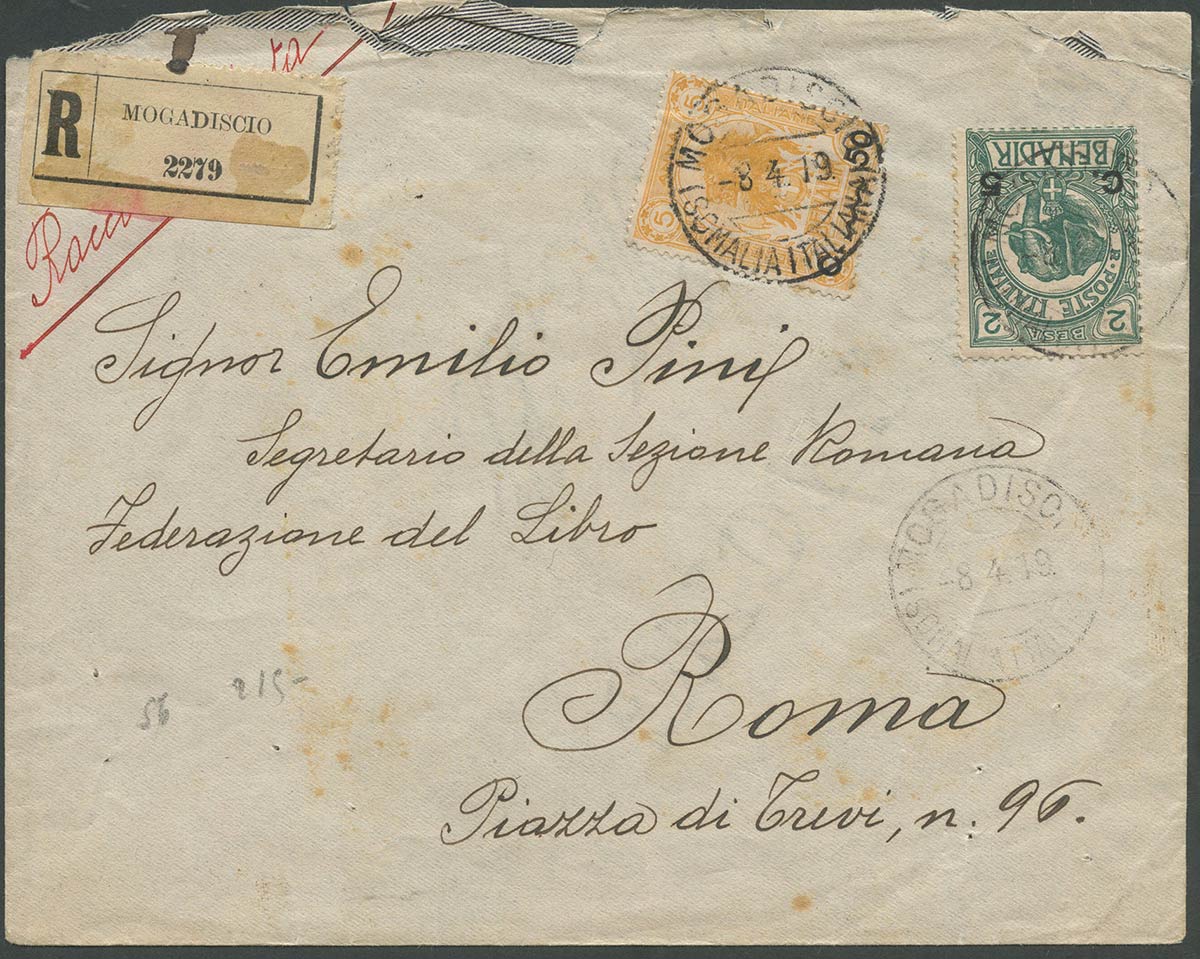 R
MOGADISCIO
2279
5 5
ITALIANE
5
C. 50
MOGADISCIO
-8 4. 19.
(SOMALIA ITALIANA)
BENADIR
C. 5
R. POSTE ITALIANE
2 BESA 2
Signor Emilio Pini
Segretario della Sezione Romana
Federazione del Libro
MOGADISCIO
-8 4. 19.
Roma
Piazza di Trevi, n. 96.
56
215-